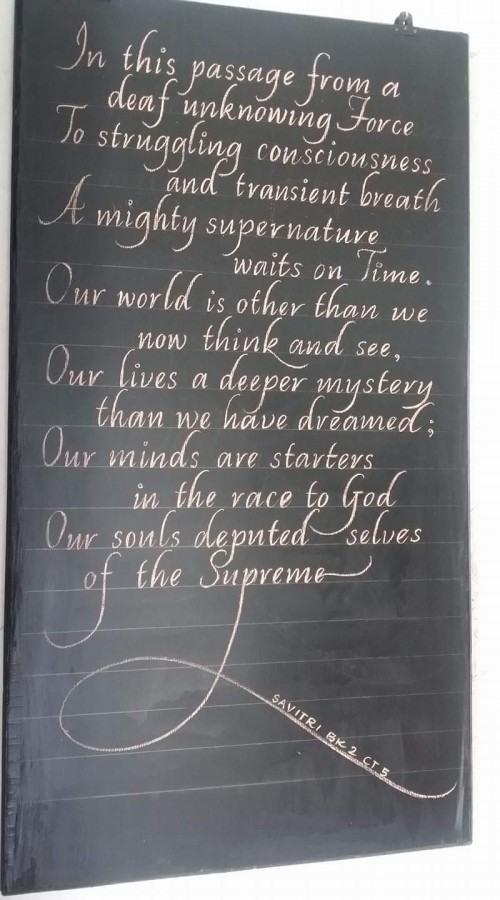 In this passage from a
deaf unknowing Force
To struggling consciousness
and transient breath
A mighty supernature
waits on Time.
Our world is other than we
now think and see,
Our lives a deeper mystery
than we have dreamed;
Our minds are starters
in the race to God
Our souls deputed selves
of the Supreme
SAVITRI BK 2 CT 5